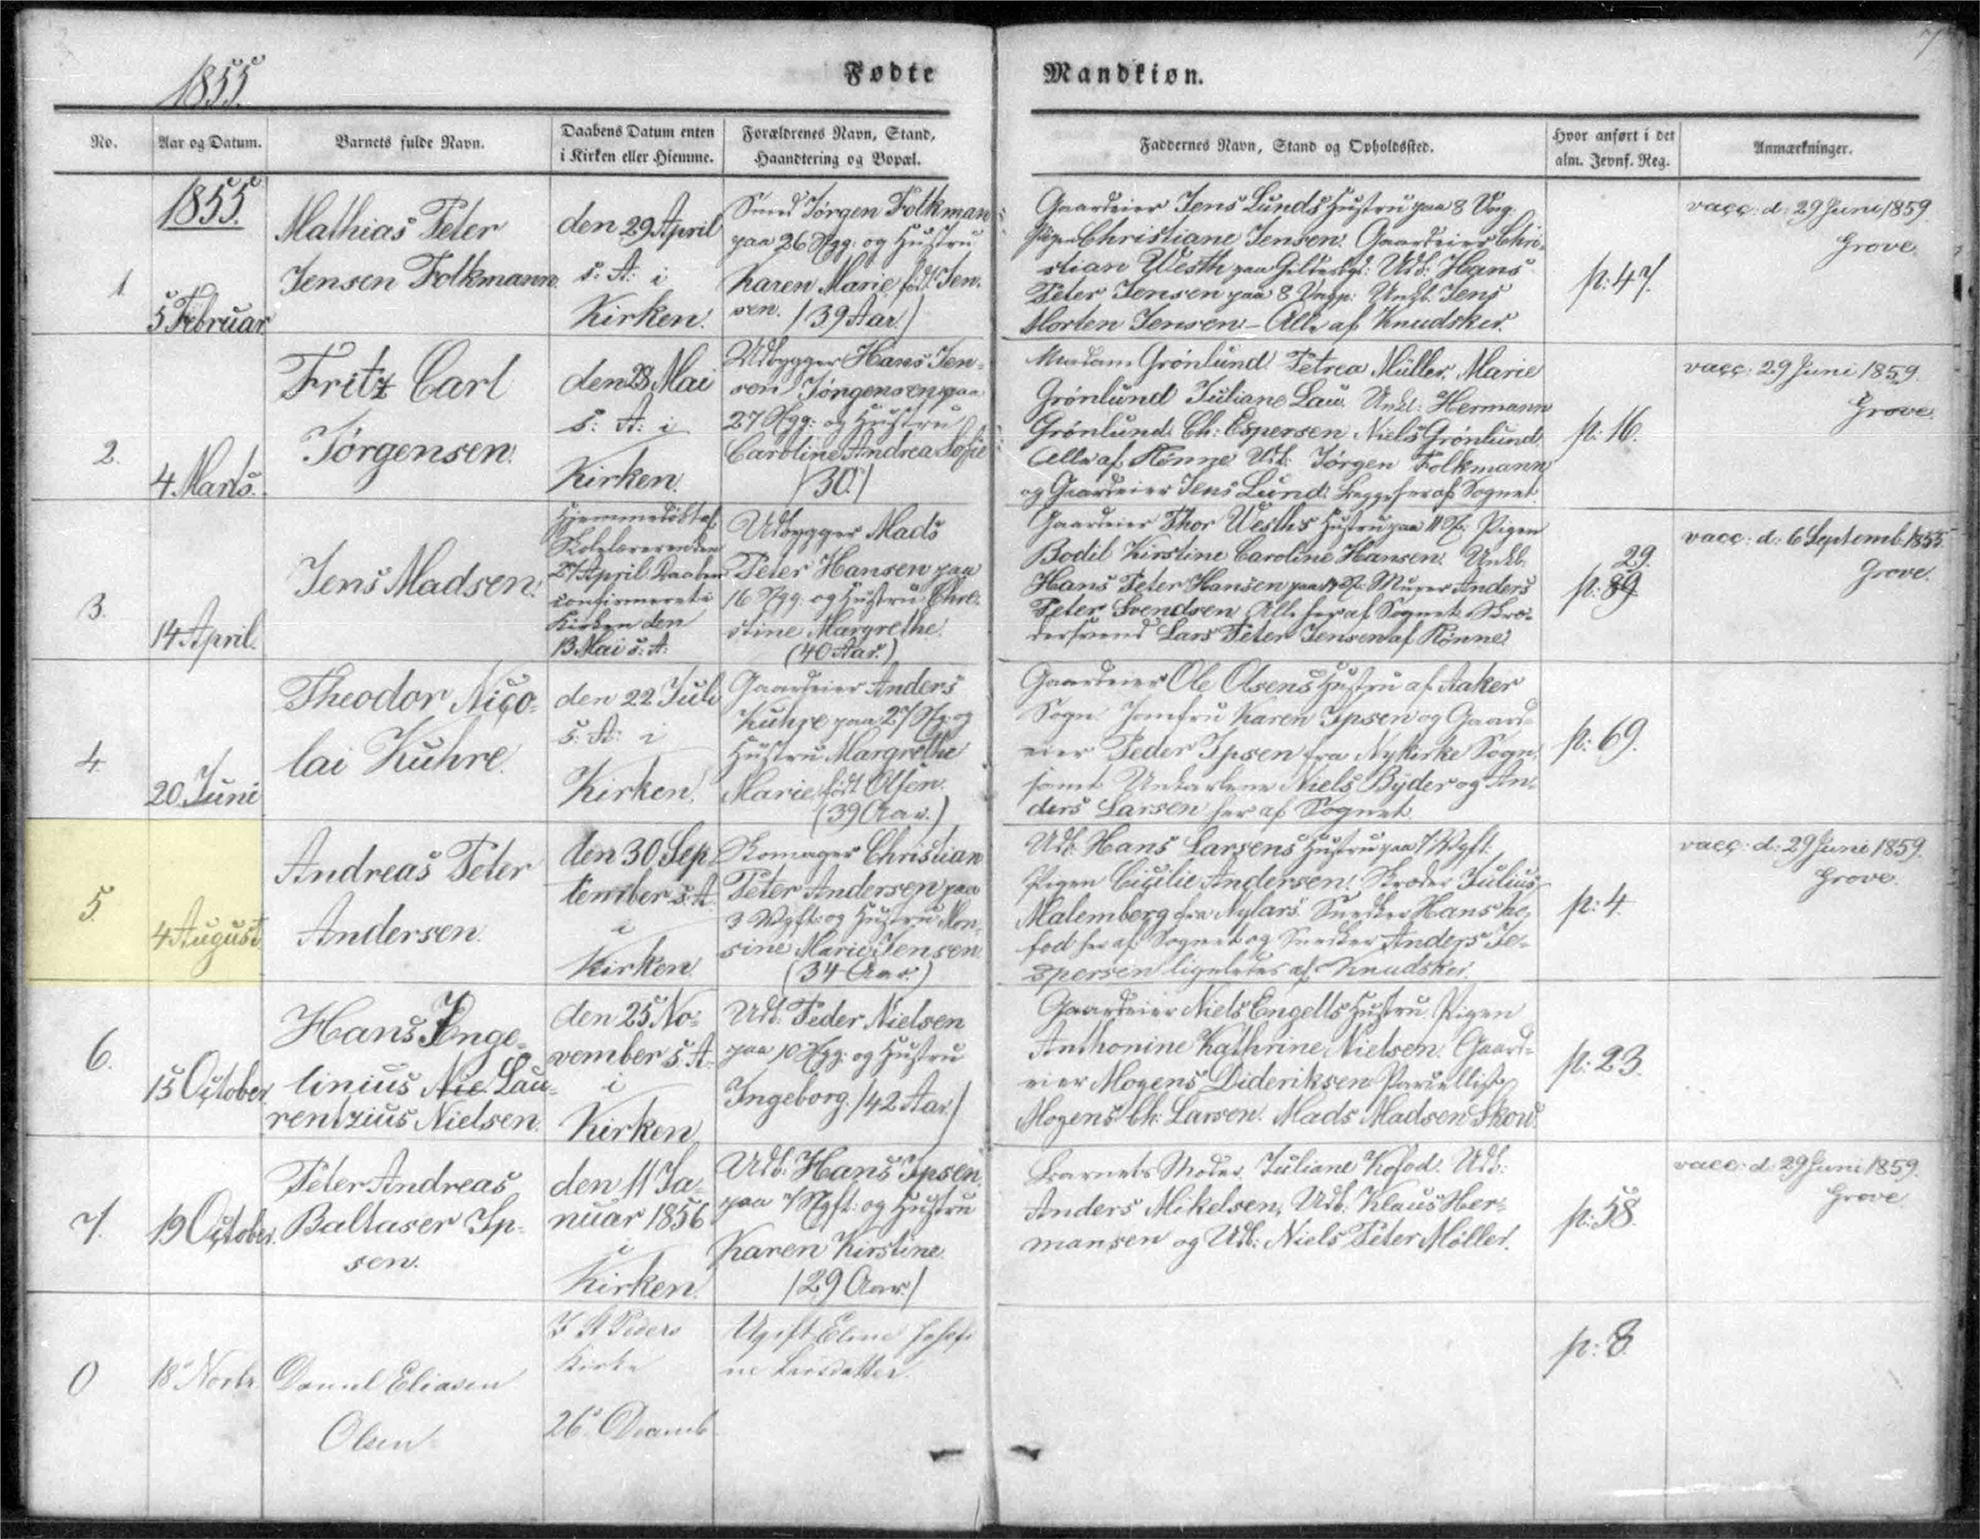 1855.
Fødte
Mandkiøn.
7
No.
Aar og Datum.
Barnets fulde Navn.
Daabens Datum enten
i Kirken eller Hiemme.
Forældrenes Navn, Stand,
Haandtering og Bopæl.
Faddernes Navn, Stand og Opholdssted.
Hvor anført i det
alm. Jevnf. Reg.
Anmærkninger.
1855.
1.
5 Februar
Mathias Peter
Jensen Folkmann
den 29 April
s: A: i
Kirken.
Smed Jørgen Folkman
paa 26 og Hustru
Karen Marie født Jen-
sen. /39 Aar/
Gaardeier Jens Lunds Hustru paa 8
Pigen Christiane Jensen. Gaardeier Chri-
stian Westh paa Udb: Hans
Peter Jensen paa 8 Jens
Morten Jensen - Alle af Knudsker.
p: 47.
vacc: d: 29 Juni 1859
Grove.
2.
4 Marts.
Fritz Carl
Jørgensen.
den 28 Mai
s: A: i
Kirken.
Udbygger Hans Jen-
sen Jørgensen paa
27 og Hustru
Caroline Andrea Sofie
/30/
Madam Grønlund Petrea Müller, Marie
Grønlund Juliane Lau. Hermann
Grønlund. Ch: Espersen Niels Grønlund
Alle af Rønne Udb: Jørgen Folkmann
og Gaardeier Jens Lund. Begge her af Sognet.
p: 16.
vacc: 29 Juni 1859.
Grove.
3.
14 April.
Jens Madsen.
Hjemmedøbt af
Skolelæreren den
27 April Daaben
confirmeret i
Kirken den
13 Mai s: A:
Udbygger Mads
Peter Hansen paa
16 og Hustru Chri-
stine Margrethe.
(40 Aar.)
Gaardeier Thor Wesths Hustru paa 11 Pigen
Bodil Kirstine Caroline Hansen.
Hans Peter Hansen paa Murer Anders
Peter Svendsen Alle her af Sognet. Skræ-
dersvend Lars Peter Jensen af Rønne.
29.
p: 89
vacc: d: 6 Septemb. 1855
Grove.
4.
20 Juni
Theodor Nico-
lai Kuhre.
den 22 Juli
s: A: i
Kirken.
Gaardeier Anders
Kuhre paa 27 og
Hustru Margrethe
Marie født Olsen.
(39 Aar.)
Gaardeier Ole Olsens Hustru af Aaker
Sogn. Jomfru Karen Ipsen og Gaard-
eier Peder Ipsen fra Nykirke Sogn,
samt Ungkarlene Niels Byder og An-
ders Larsen her af Sognet.
p: 69.
5.
4 August
Andreas Peter
Andersen.
den 30 Sep-
tember s: A:
i
Kirken
Skomager Christian
Peter Andersen paa
3 og Hustru Mon-
sine Marie Jensen
(34 Aar.)
Udb: Hans Larsens Hustru paa 7
Pigen Cicilie Andersen. Skræder Julius
Malemberg fra Nylars. Snedker Hans Ko-
fod her af Sognet og Snedker Anders Je-
spersen ligeledes af Knudsker.
p: 4.
vacc: d: 29 Juni 1859.
Grove.
6.
15 October
Hans Enge-
linius Nic. Lau-
rentzius Nielsen.
den 25 No-
vember s: A:
i
Kirken
Udb: Peder Nielsen
paa 10 og Hustru
Ingeborg. /42 Aar./
Gaardeier Niels Engells Hustru. Pigen
Anthonine Kathrine Nielsen. Gaard-
eier Mogens Dideriksen Parcellist
Mogens Ch: Larsen. Mads Madsen Skov.
p: 23.
7.
19 October.
Peter Andreas
Baltaser Ip-
sen.
den 11 Ja-
nuar 1856
i
Kirken.
Udb: Hans Ipsen
paa 7 og Hustru
Karen Kirstine.
/29 Aar./
Barnets Moder. Juliane Kofod. Udb:
Anders Mikelsen, Udb: Klaus Her-
mansen og Udb: Niels Peter Møller.
p: 58.
vacc: d: 29 Juni 1859.
Grove
0
18 Novbr.
Daniel Eliasen
Olsen
I St Peders
Kirke
26 Decemb
Ugift Eline Josefi-
ne Larsdatter.
p: 8.